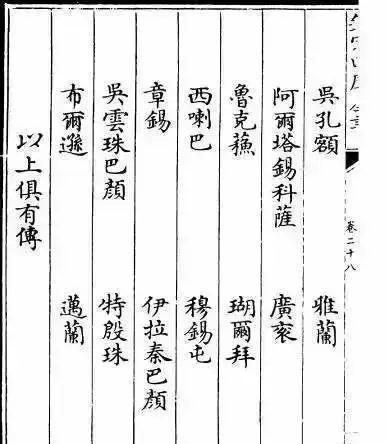 卷二十八
吳孔額　雅蘭
阿爾塔錫科薩　廣袞
魯克蘓　瑚爾拜
西喇巴　穆錫屯
章錫　伊拉秦巴顏
吳雲珠巴顏　特殷珠
布爾遜　邁蘭
以上俱有傳